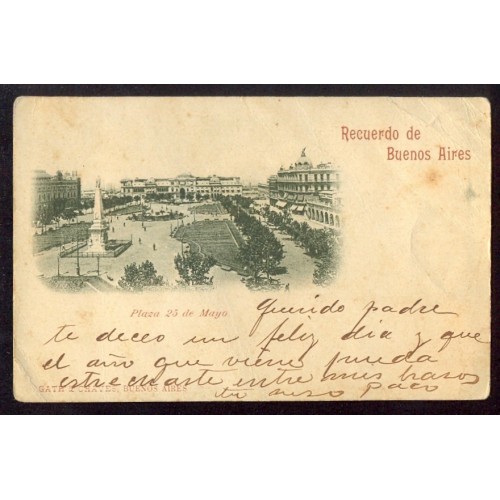 Recuerdo de
Buenos Aires
Plaza 25 de Mayo
Querido padre
te deceo un feliz dia y que
el año que viene pueda
estrecharte entre mis brasos
tu
GATH & CHAVES, BUENOS AIRES